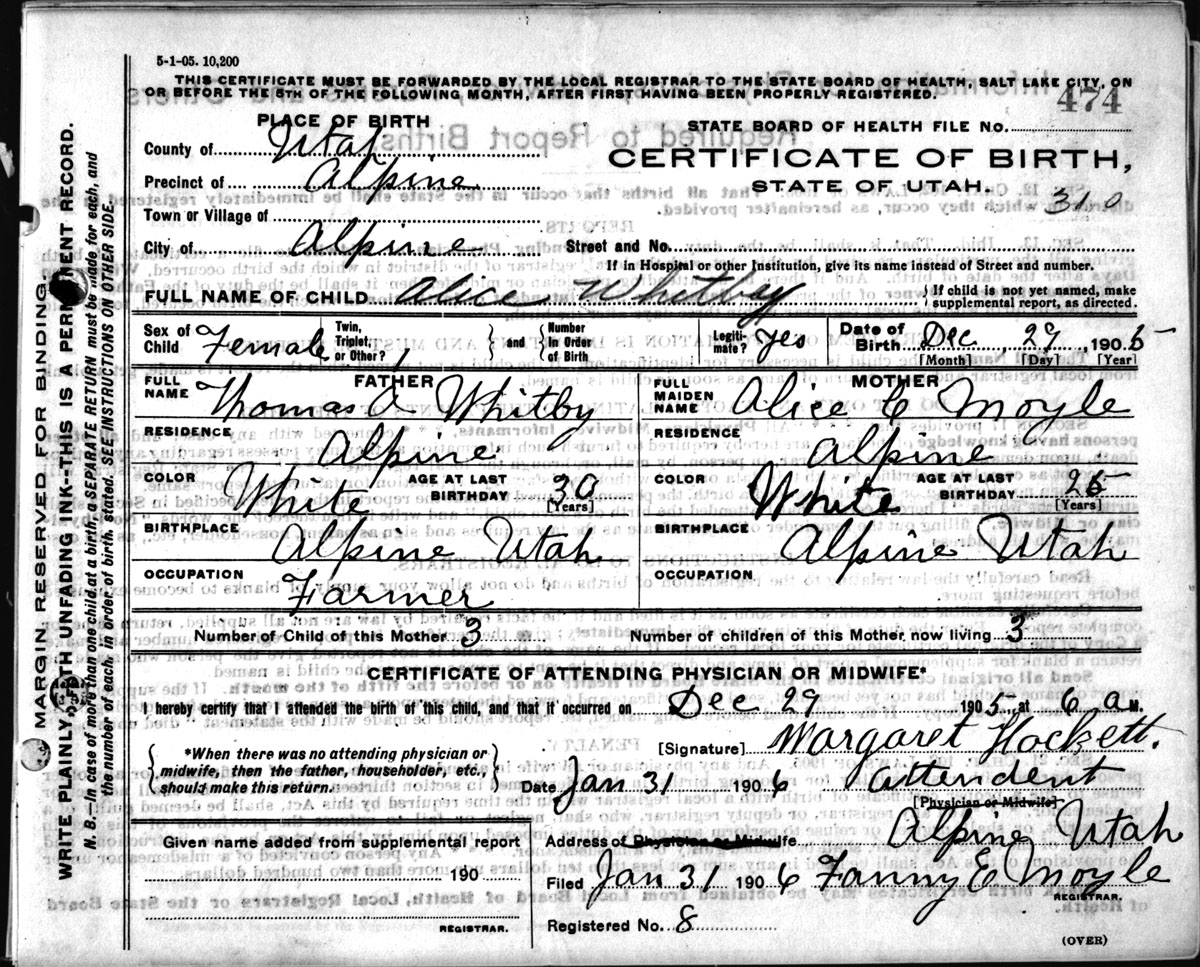 5-1-05. 10,200
THIS CERTIFICATE MUST BE FORWARDED BY THE LOCAL REGISTRAR TO THE STATE BOARD OF HEALTH, SALT LAKE CITY, ON
OR BEFORE THE 5TH OF THE FOLLOWING MONTH, AFTER FIRST HAVING BEEN PROPERLY REGISTERED.
474
PLACE OF BIRTH
STATE BOARD OF HEALTH FILE No.
County of Utah
CERTIFICATE OF BIRTH,
Precinct of Alpine
STATE OF UTAH.
310
Town or Village of
City of Alpine Street and No.
If in Hospital or other Institution, give its name instead of Street and number.
FULL NAME OF CHILD Alice Whitby { If child is not yet named, make
supplemental report, as directed.
Sex of Child Female Twin, Triplet, or Other? 1 } and { Number in Order of Birth Legiti-mate? yes Date of Birth Dec 29, 1905
[Month] [Day] [Year]
FATHER MOTHER
FULL NAME Thomas A Whitby FULL MAIDEN NAME Alice C Moyle
RESIDENCE Alpine RESIDENCE Alpine
COLOR White AGE AT LAST BIRTHDAY 30 [Years] COLOR White AGE AT LAST BIRTHDAY 26 [Years]
BIRTHPLACE Alpine Utah BIRTHPLACE Alpine Utah
OCCUPATION Farmer OCCUPATION
Number of Child of this Mother 3 Number of children of this Mother now living 3
CERTIFICATE OF ATTENDING PHYSICIAN OR MIDWIFE*
I hereby certify that I attended the birth of this child, and that it occurred on Dec 29 1905, at 6 a M.
{ *When there was no attending physician or
midwife, then the father, householder, etc.,
should make this return. }
[Signature] Margaret Hackett.
Date Jan 31 1906 attendent
[Physician or Midwife]
Given name added from supplemental report
190
REGISTRAR.
Address of Physician or Midwife Alpine Utah
Filed Jan 31 1906 Fanny E Moyle
REGISTRAR.
Registered No. 8
(OVER)
MARGIN RESERVED FOR BINDING.
WRITE PLAINLY WITH UNFADING INK--THIS IS A PERMANENT RECORD.
N. B.—In case of more than one child at a birth, a SEPARATE RETURN must be made for each, and
the number of each, in order of birth, stated. SEE INSTRUCTIONS ON OTHER SIDE.